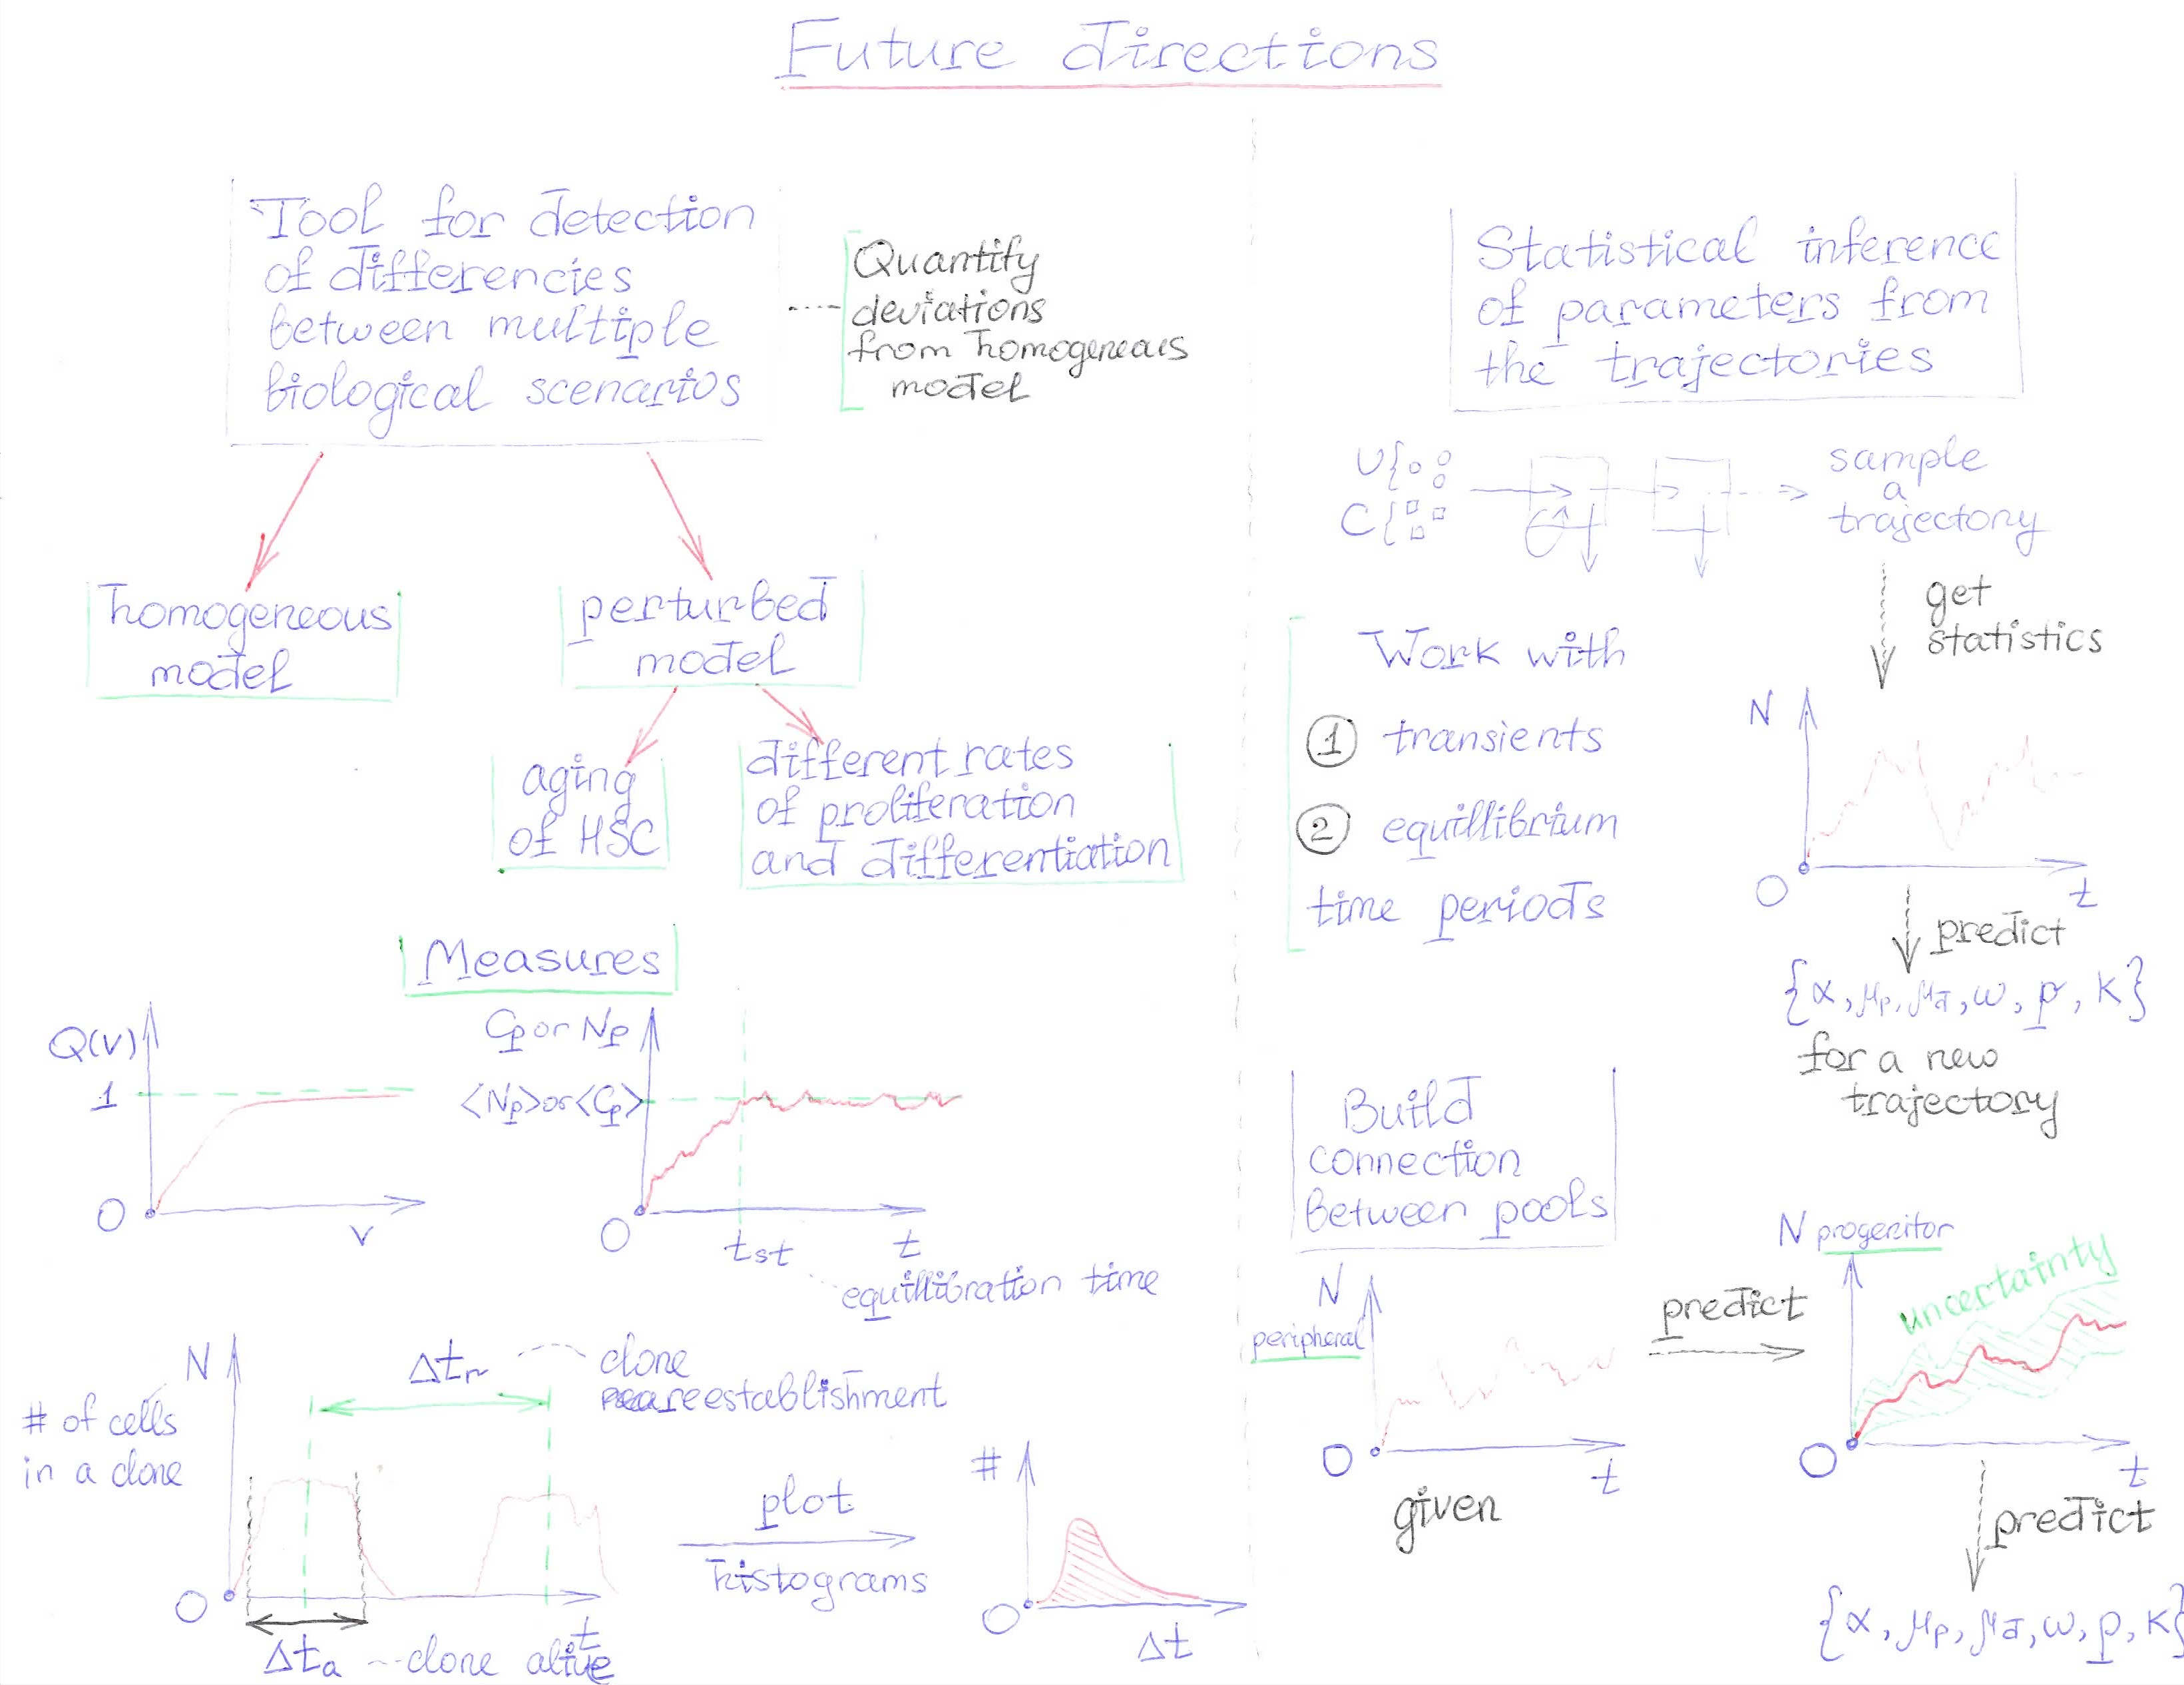 Future directions
Tool for detection
of differencies
between multiple
biological scenarios
Quantify
deviations
from homogeneous
model
homogeneous
model
perturbed
model
aging
of HSC
different rates
of proliferation
and differentiation
Measures
Q(v)
1
0
v
Cp or Np
<Np> or <Cp>
0
tst
t
equillibration time
N
# of cells
in a clone
Δtr
clone
reestablishment
0
t
Δta -- clone alive
plot
histograms
#
0
Δt
Statistical inference
of parameters from
the trajectories
U{
C{
sample
a
trajectory
get
statistics
Work with
1 transients
2 equillibrium
time periods
N
0
t
predict
{α, μp, μd, ω, p, K}
for a new
trajectory
Build
connection
between pools
N
peripheral
0
t
given
predict
N progenitor
uncertainty
0
t
predict
{α, μp, μd, ω, p, K}